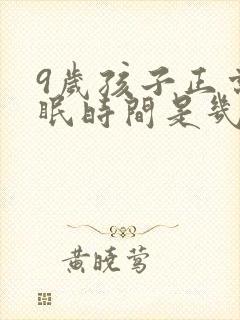 9歲孩子正常
眠時間是幾
黃曉鶯